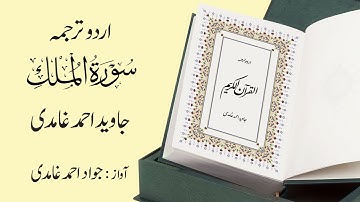 اردو ترجمہ
سُورَةُ الْمُلْكِ
جاوید احمد غامدی
آواز : جواد احمد غامدی
اردو ترجمہ
القرآن الكريم
جاوید احمد غامدی